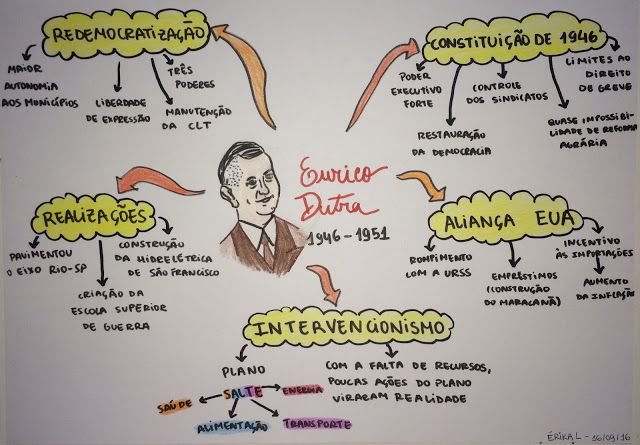 REDEMOCRATIZAÇÃO
MAIOR
AUTONOMIA
AOS MUNICÍPIOS
LIBERDADE
DE EXPRESSÃO
TRÊS
PODERES
MANUTENÇÃO
DA CLT
CONSTITUIÇÃO DE 1946
PODER
EXECUTIVO
FORTE
RESTAURAÇÃO
DA DEMOCRACIA
CONTROLE
DOS SINDICATOS
LIMITES AO
DIREITO
DE GREVE
QUASE IMPOSSIBI-
LIDADE DE REFORMA
AGRÁRIA
Eurico
Dutra
1946-1951
REALIZAÇÕES
PAVIMENTOU
O EIXO RIO-SP
CRIAÇÃO DA
ESCOLA SUPERIOR
DE GUERRA
CONSTRUÇÃO
DA HIDRELÉTRICA
DE SÃO FRANCISCO
ALIANÇA EUA
ROMPIMENTO
COM A URSS
EMPRÉSTIMOS
(CONSTRUÇÃO
DO MARACANÃ)
INCENTIVO
ÀS IMPORTAÇÕES
AUMENTO
DA INFLAÇÃO
INTERVENCIONISMO
PLANO
SALTE
SAÚDE
ALIMENTAÇÃO
TRANSPORTE
ENERGIA
COM A FALTA DE RECURSOS,
POUCAS AÇÕES DO PLANO
VIRARAM REALIDADE
ÉRIKA L - 16/09/16